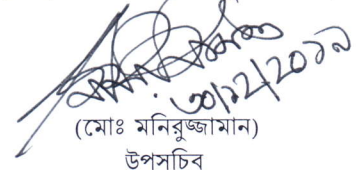 ৩০/১২/২০১৯
(মোঃ মনিরুজ্জামান)
উপসচিব